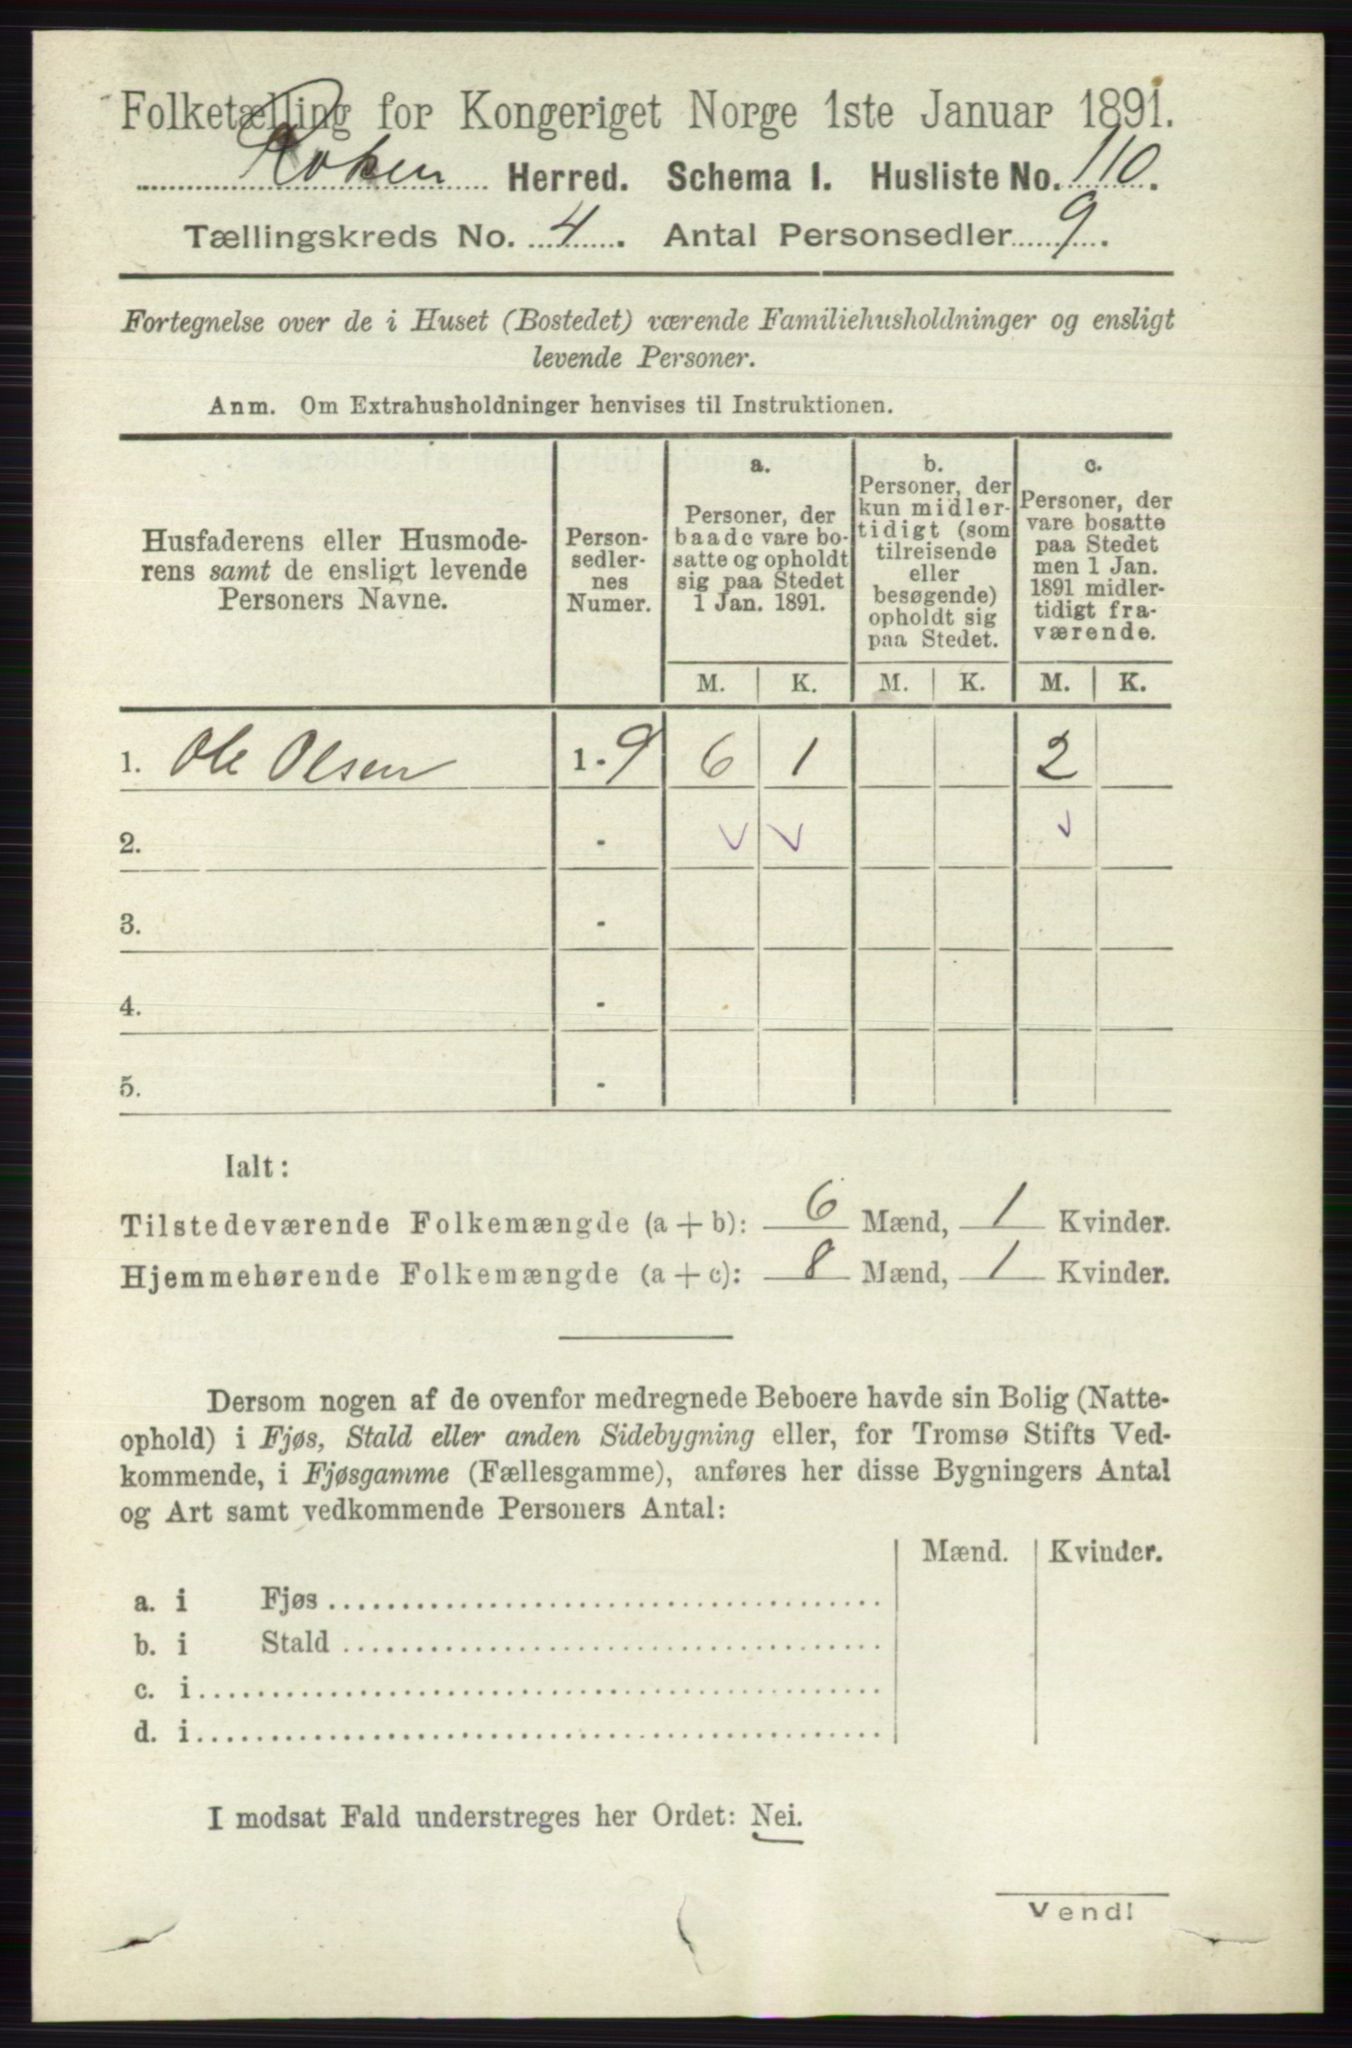 Folketælling for Kongeriget Norge 1ste Januar 1891.
Røken Herred. Schema I. Husliste No. 110.
Tællingskreds No. 4. Antal Personsedler 9.
Fortegnelse over de i Huset (Bostedet) værende Familiehusholdninger og ensligt
levende Personer.
Anm. Om Extrahusholdninger henvises til Instruktionen.
Husfaderens eller Husmode-
rens samt de ensligt levende
Personers Navne.
Person-
sedler-
nes
Numer.
a.
Personer, der
baade vare bo-
satte og opholdt
sig paa Stedet
1 Jan. 1891.
b.
Personer, der
kun midler-
tidigt (som
tilreisende
eller
besøgende)
opholdt sig
paa Stedet.
c.
Personer, der
vare bosatte
paa Stedet
men 1 Jan.
1891 midler-
tidigt fra-
værende.
M. K. M. K. M. K.
1. Ole Olsen 1 - 9 6 1 2
2. - v v v
3. -
4. -
5. -
Ialt:
Tilstedeværende Folkemængde (a + b): 6 Mænd, 1 Kvinder.
Hjemmehørende Folkemængde (a + c): 8 Mænd, 1 Kvinder.
Dersom nogen af de ovenfor medregnede Beboere havde sin Bolig (Natte-
ophold) i Fjøs, Stald eller anden Sidebygning eller, for Tromsø Stifts Ved-
kommende, i Fjøsgamme (Fællesgamme), anføres her disse Bygningers Antal
og Art samt vedkommende Personers Antal:
Mænd. Kvinder.
a. i Fjøs
b. i Stald
c. i
d. i
I modsat Fald understreges her Ordet: Nei.
Vend!